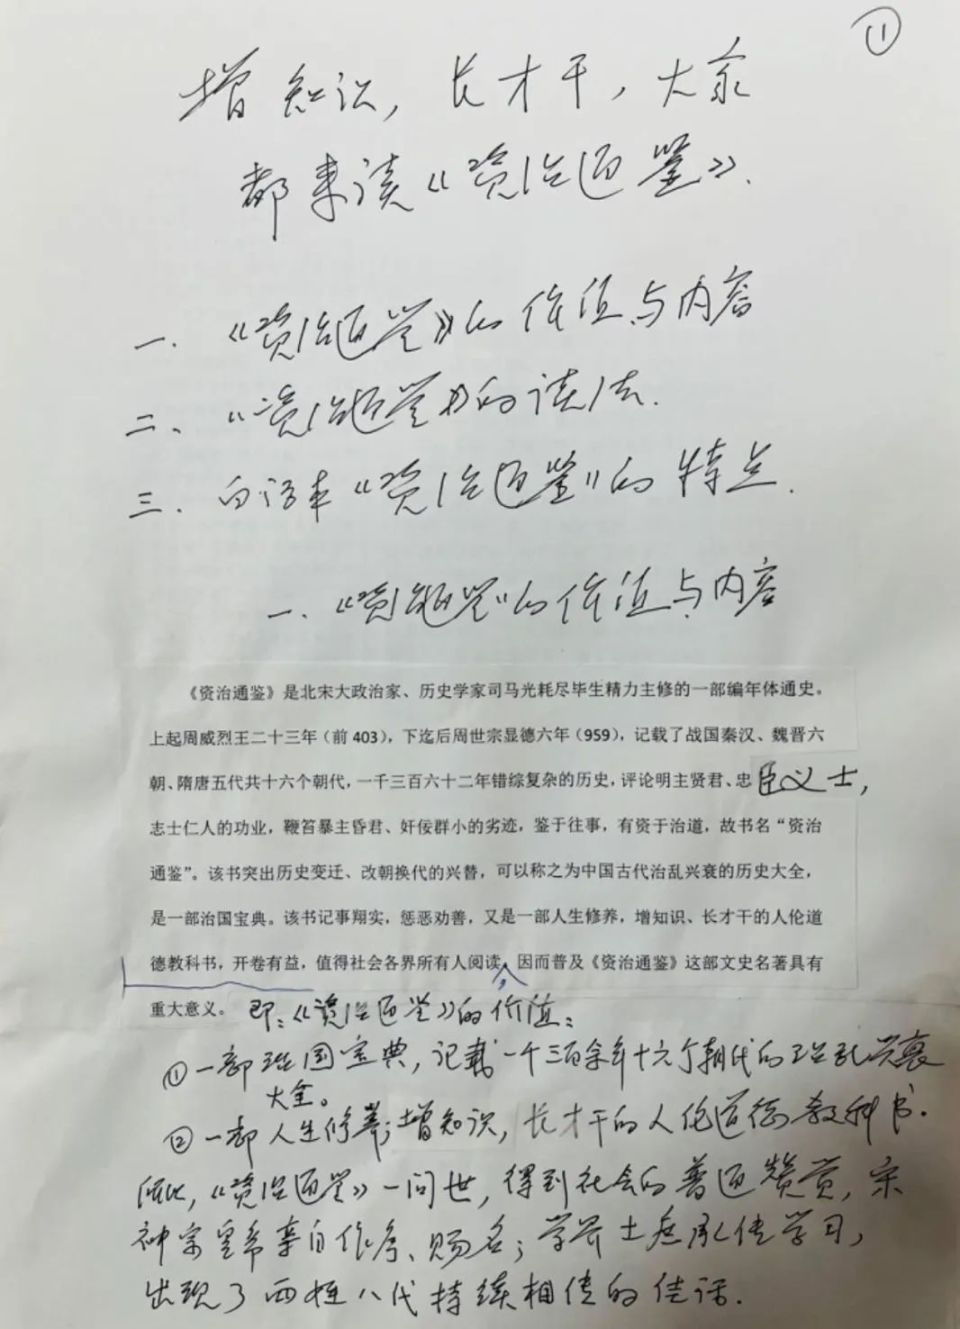 ①
增知识，长才干，大家
都来读《资治通鉴》.
一.《资治通鉴》的价值与内容
二、《资治通鉴》的读法.
三.白话本《资治通鉴》的特点.
一.《资治通鉴》的价值与内容
《资治通鉴》是北宋大政治家、历史学家司马光耗尽毕生精力主修的一部编年体通史。
上起周威烈王二十三年（前403），下迄后周世宗显德六年（959），记载了战国秦汉、魏晋六
朝、隋唐五代共十六个朝代，一千三百六十二年错综复杂的历史，评论明主贤君、忠臣义士，
志士仁人的功业，鞭笞暴主昏君、奸佞群小的劣迹，鉴于往事，有资于治道，故书名“资治
通鉴”。该书突出历史变迁、改朝换代的兴替，可以称之为中国古代治乱兴衰的历史大全，
是一部治国宝典。该书记事翔实，惩恶劝善，又是一部人生修养，增知识、长才干的人伦道
德教科书，开卷有益，值得社会各界所有人阅读，因而普及《资治通鉴》这部文史名著具有
重大意义。即：《资治通鉴》的价值：
①一部治国宝典，记载一千三百余年十六个朝代的治乱兴衰
大全。
②一部人生修养；增知识，长才干的人伦道德教科书.
因此，《资治通鉴》一问世，得到社会的普遍赞赏，宋
神宗皇帝亲自作序、赐名；学界士悉承传学习，
出现了两姓八代持续相传的佳话.